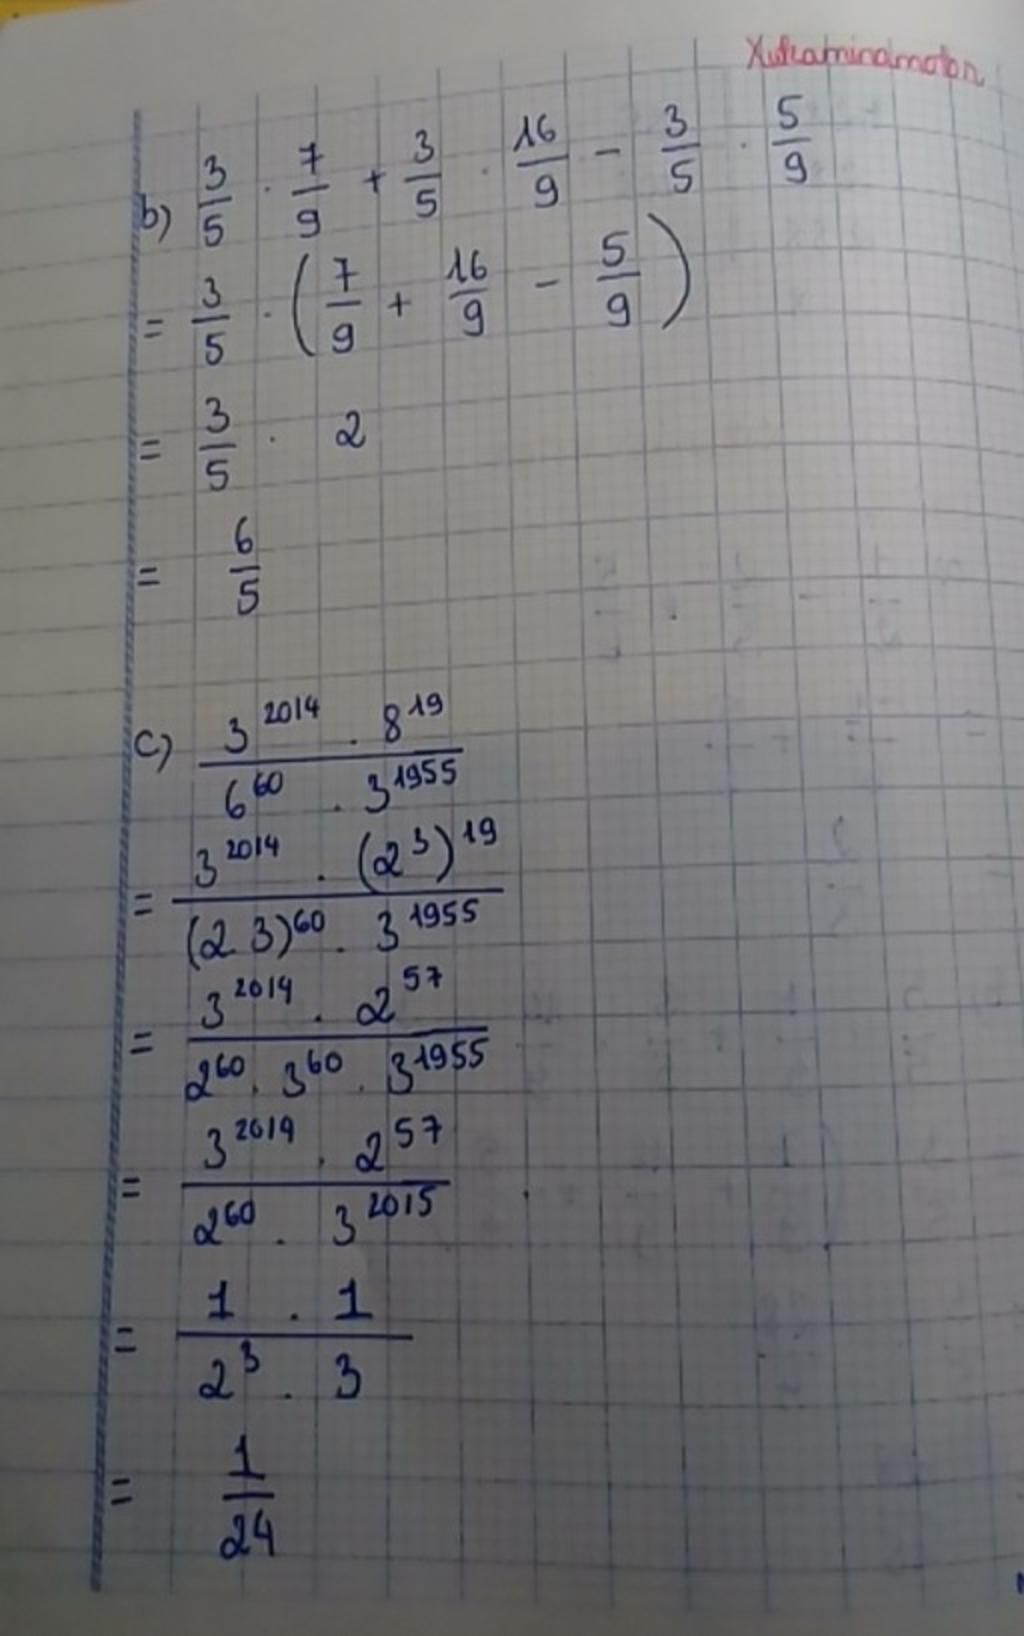 Xukaminamoton
b) 3/5 . 7/9 + 3/5 . 16/9 - 3/5 . 5/9
= 3/5 . (7/9 + 16/9 - 5/9)
= 3/5 . 2
= 6/5
c) 3^2014 . 8^19 / 6^60 . 3^1955
= 3^2014 . (2^3)^19 / (2.3)^60 . 3^1955
= 3^2014 . 2^57 / 2^60 . 3^60 . 3^1955
= 3^2014 . 2^57 / 2^60 . 3^2015
= 1 . 1 / 2^3 . 3
= 1/24